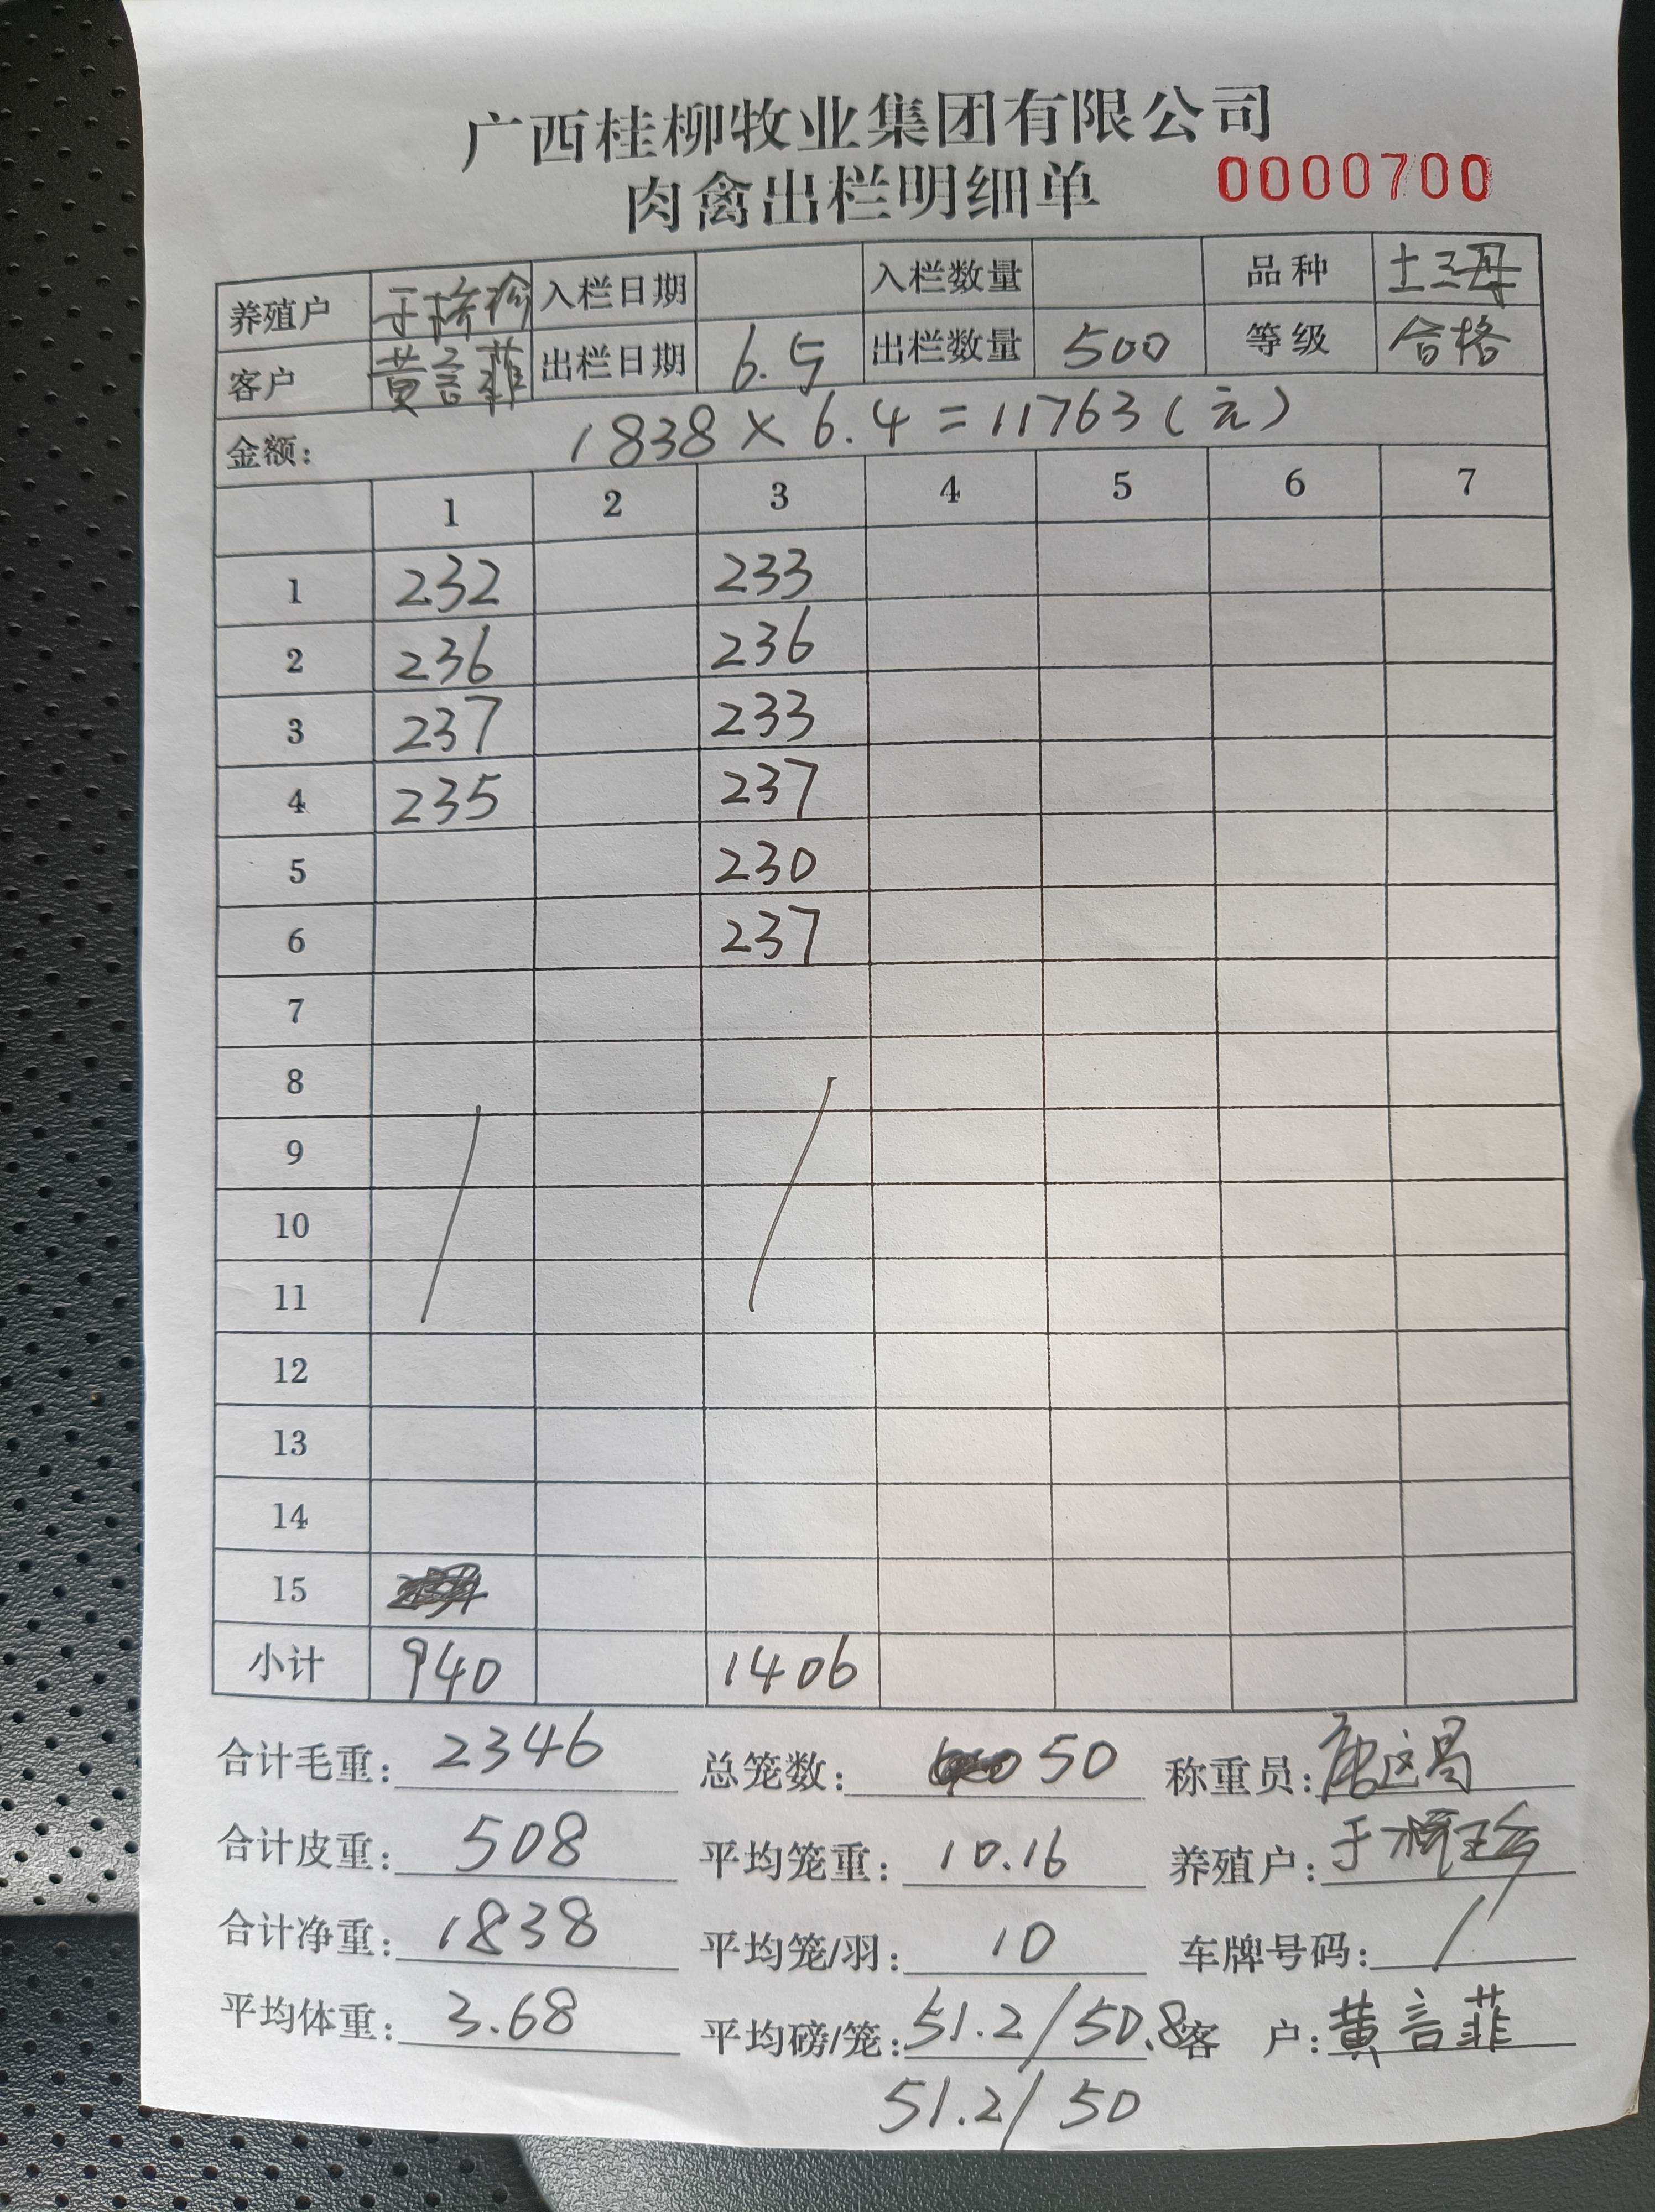 广西桂柳牧业集团有限公司
肉禽出栏明细单 0000700
养殖户 于 入栏日期 入栏数量 品种 土三母
客户 黄言菲 出栏日期 6.5 出栏数量 500 等级 合格
金额: 1838×6.4=11763(元)
1 2 3 4 5 6 7
1 232 233
2 236 236
3 237 233
4 235 237
5 230
6 237
7
8
9
10
11
12
13
14
15
小计 940 1406
合计毛重: 2346 总笼数: 50 称重员:
合计皮重: 508 平均笼重: 10.16 养殖户: 于
合计净重: 1838 平均笼/羽: 10 车牌号码: /
平均体重: 3.68 平均磅/笼: 51.2/50.8 客 户: 黄言菲
51.2/50